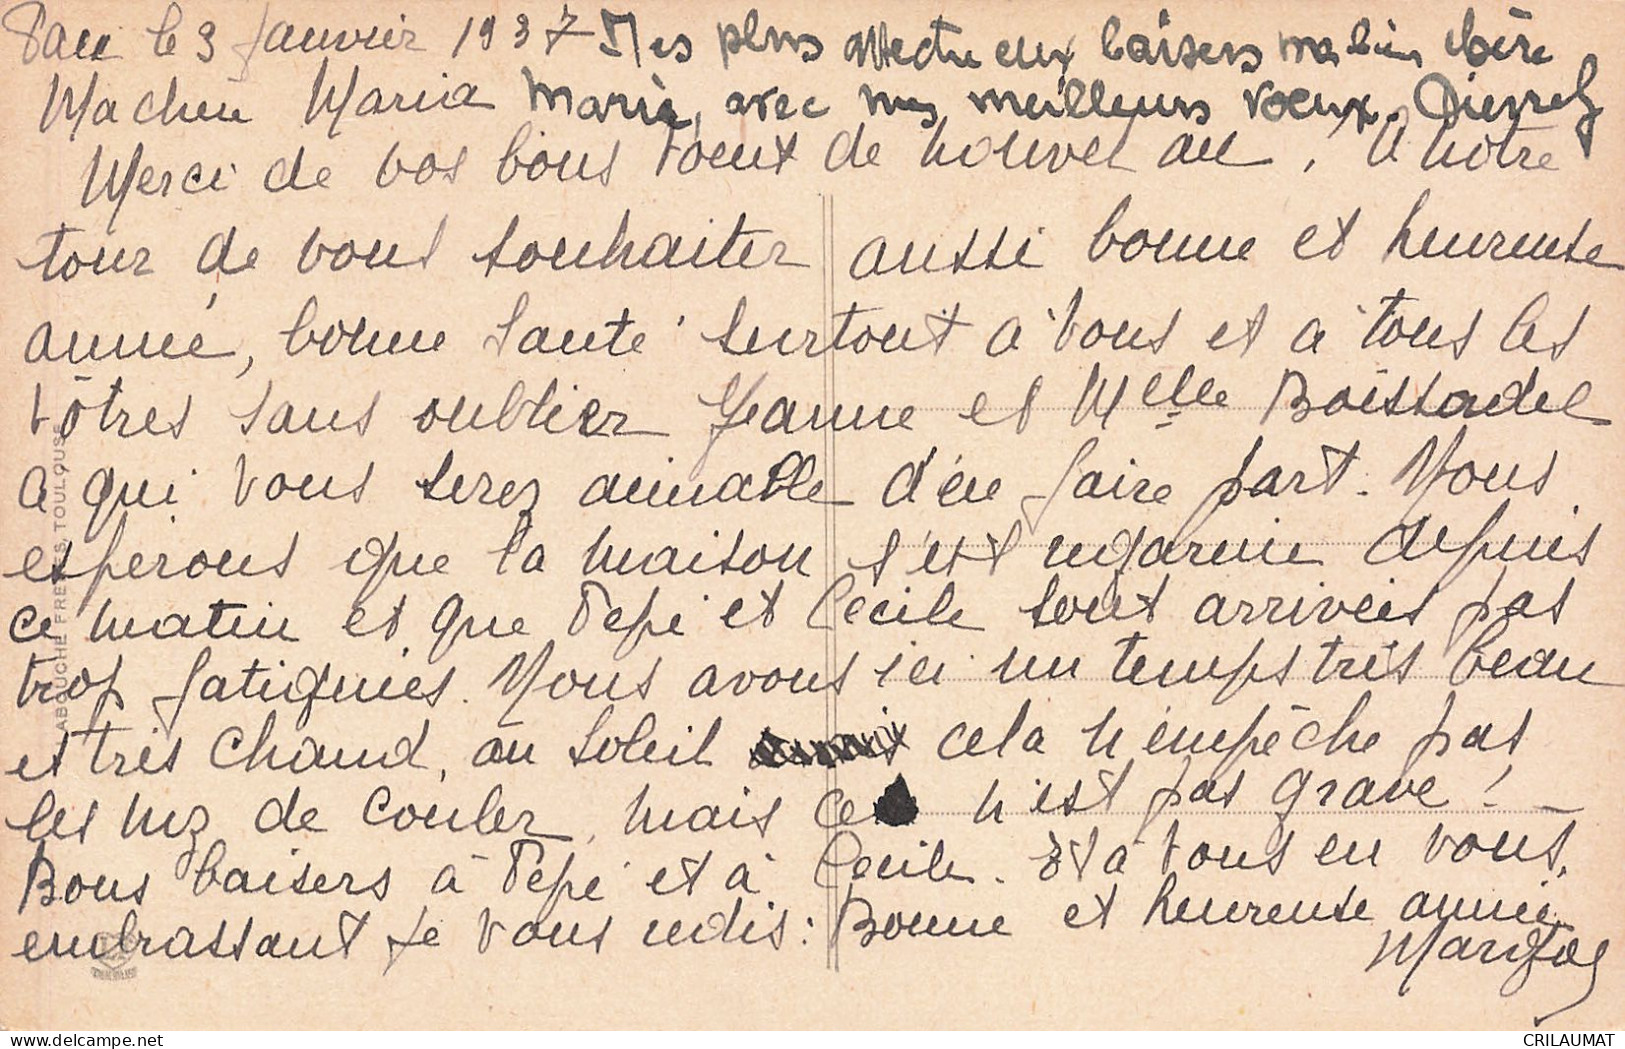 Pau le 3 Janvier 1937 Mes plus affectueux baisers ma bien chère
Ma chère Maria Marie, avec mes meilleurs voeux. Pierrot
Merci de vos bons voeux de nouvel an, A notre
tour de vous souhaiter aussi bonne et heureuse
année, bonne santé surtout à vous et à tous les
vôtres sans oublier Jeanne et Melle Boissadel
a qui vous serez aimable d'en faire part. Nous
esperons que la maison s'est regarnie depuis
ce matin et que Pépé et Cécile sont arrivés pas
trop fatiguiés. Nous avons ici un temps très beau
et très chaud, au soleil cela n'empêche pas
les nez de couler, mais ce n'est pas grave ! _
Bons baisers à Pépé et à Cécile. Et à vous en vous,
embrassant je vous redis : Bonne et heureuse année
Margot
LABOUCHE FRERES TOULOUSE
CRILAUMAT